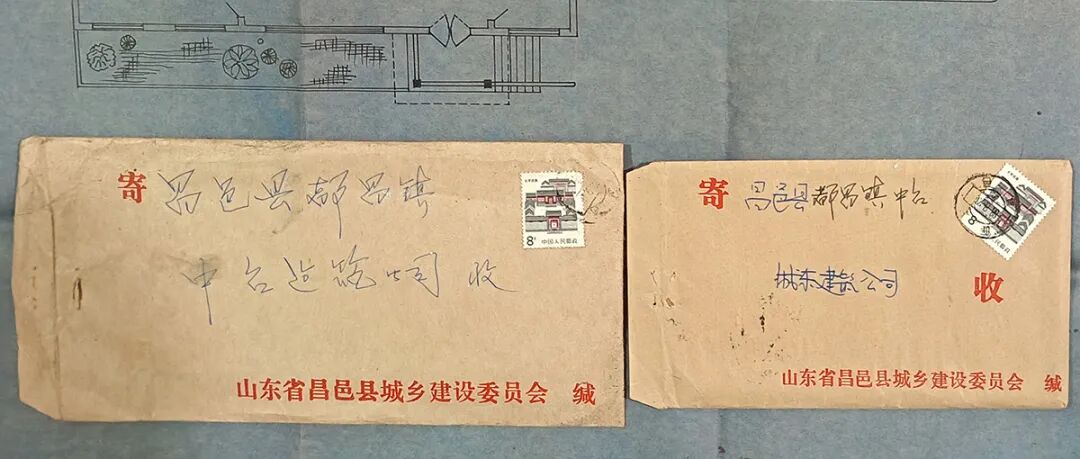 寄 昌邑县都昌镇
中台建筑公司 收
8分 中国人民邮政
山东省昌邑县城乡建设委员会 缄
寄 昌邑县都昌镇中台
城东建筑公司 收
山东省昌邑县城乡建设委员会 缄